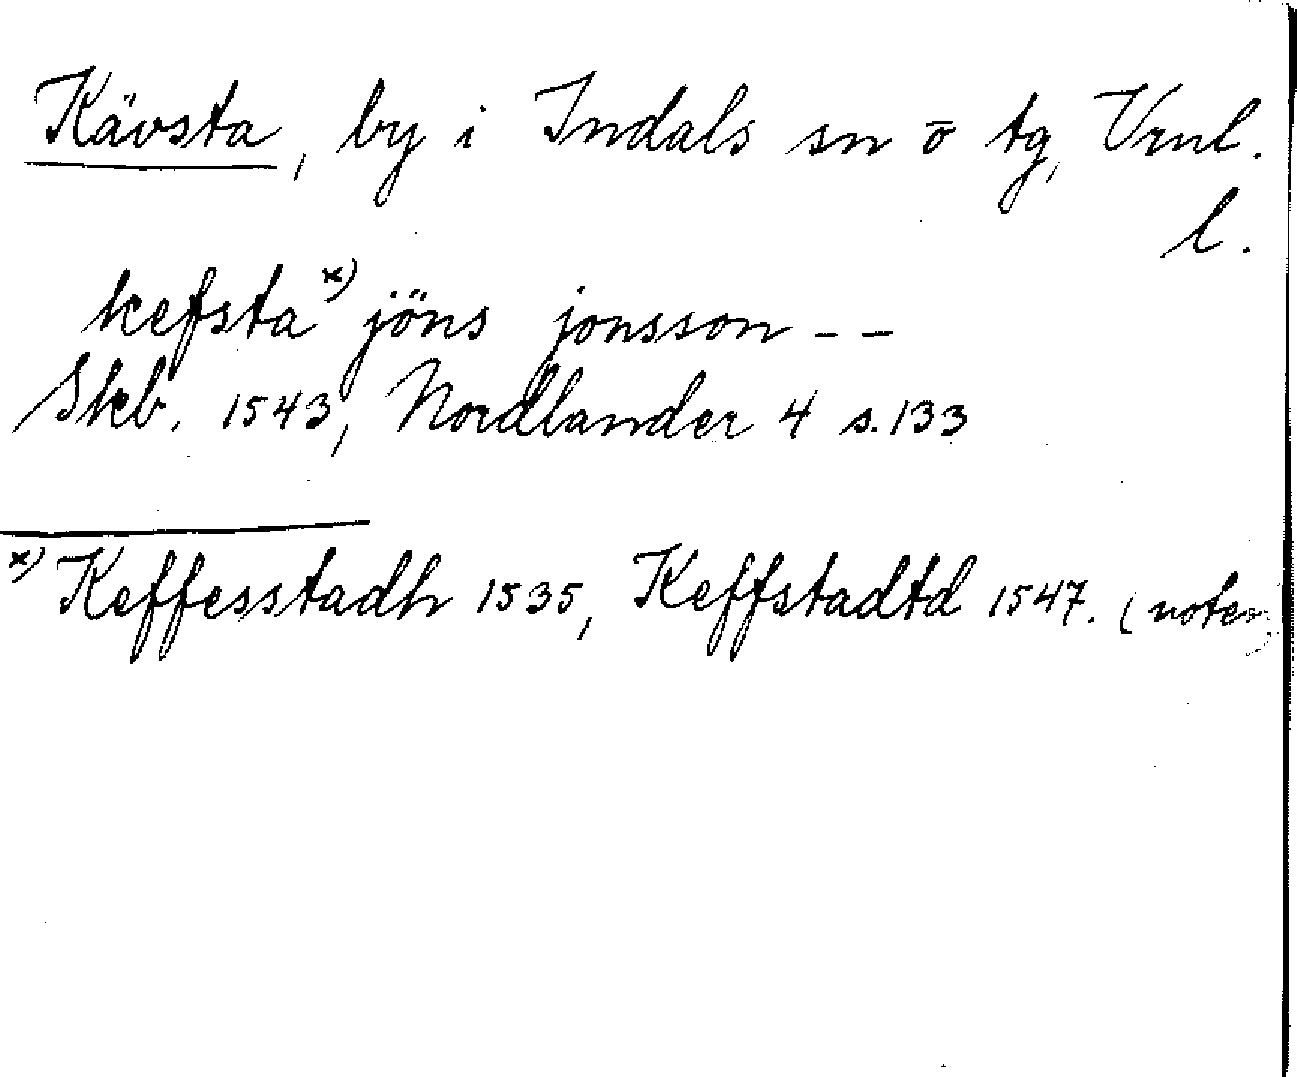 Kävsta, by i Indals sn o tg, Vrnl.
l.
kefsta x) jöns jonsson - -
Skb. 1543, Nordlander 4 s. 133
x) Keffesstadh 1535, Keffstadtd 1547. (noten)